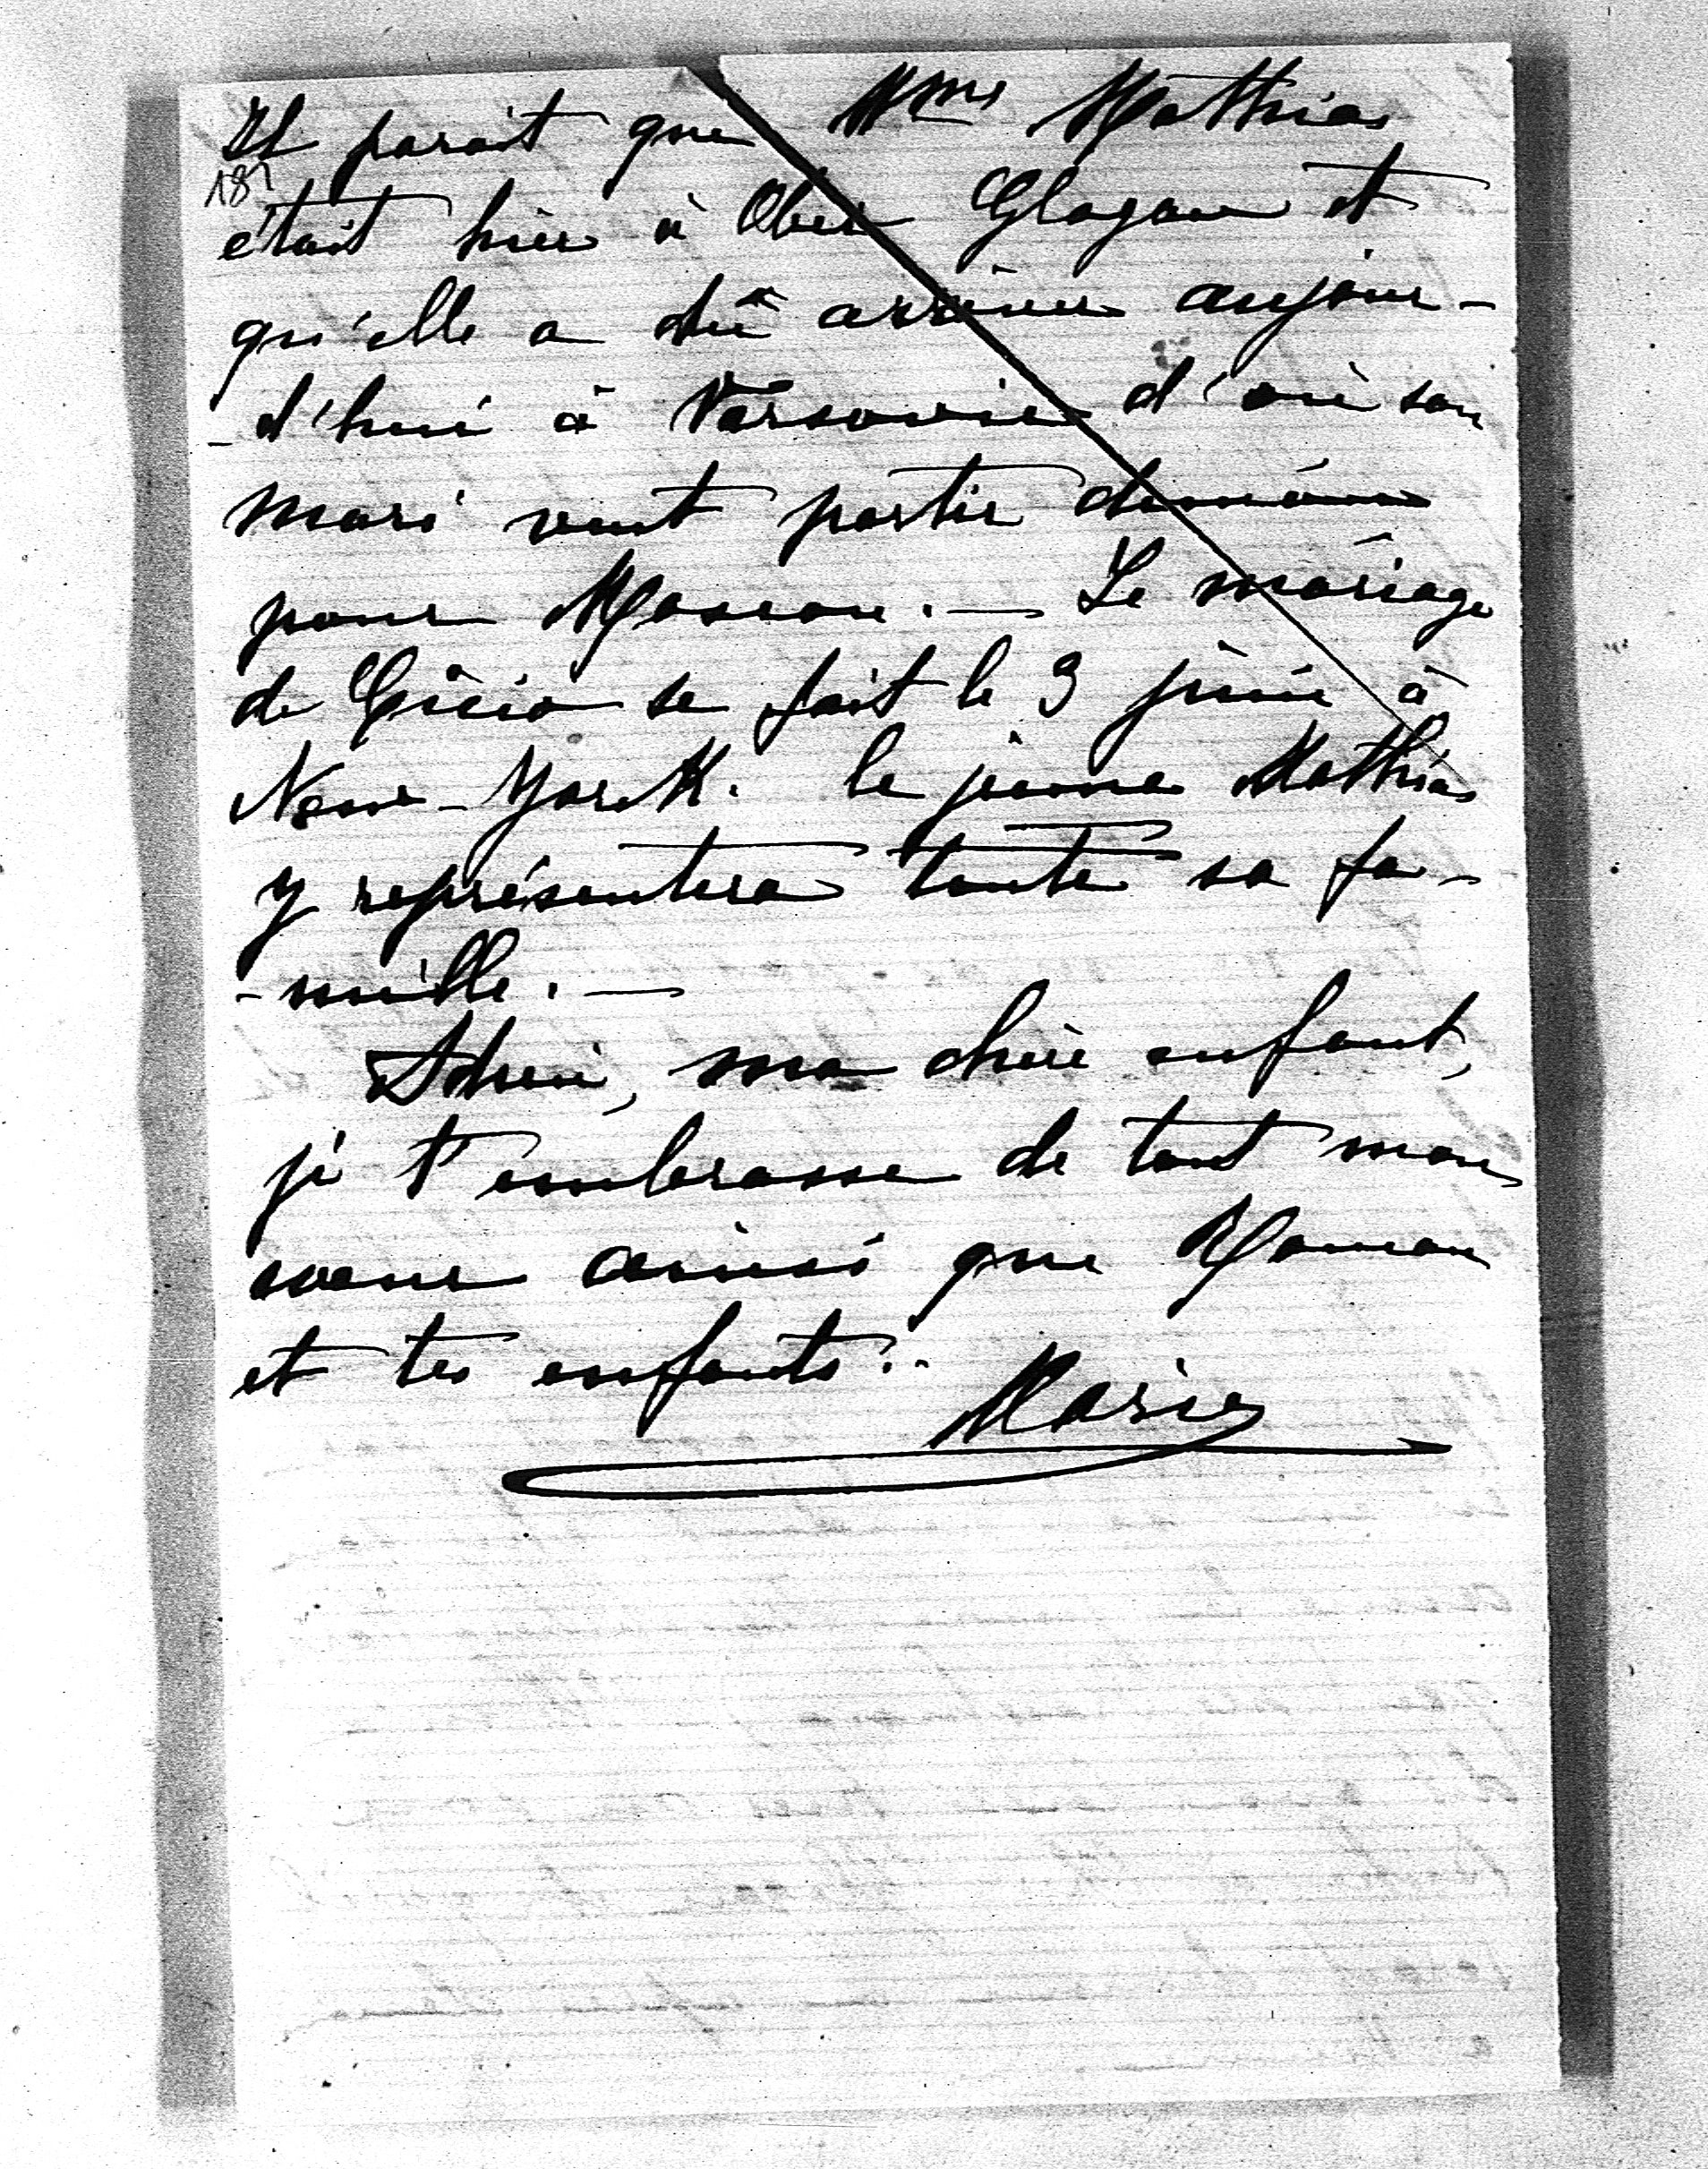 Il parait que Mme Mathias
187
était hier à Ober Glogau et
qu'elle a dû arriver aujour-
-d'hui à Varsovie d'où son
mari veut partir demain
pour Moscou. — Le mariage
de Gizio se fait le 3 juin à
New-York. le jeune Mathias
y représentera toute sa fa-
-mille. —
Adieu, ma chère enfant,
je t'embrasse de tout mon
coeur ainsi que Maman
et tes enfants.
Marie